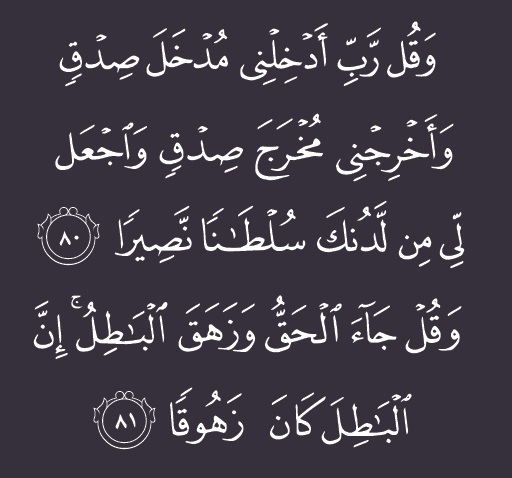 وَقُل رَّبِّ أَدۡخِلۡنِى مُدۡخَلَ صِدۡقٍ
وَأَخۡرِجۡنِى مُخۡرَجَ صِدۡقٍ وَٱجۡعَل
لِّى مِن لَّدُنكَ سُلۡطَـٰنًا نَّصِيرًا ٨٠
وَقُلۡ جَآءَ ٱلۡحَقُّ وَزَهَقَ ٱلۡبَـٰطِلُۚ إِنَّ
ٱلۡبَـٰطِلَ كَانَ زَهُوقًا ٨١